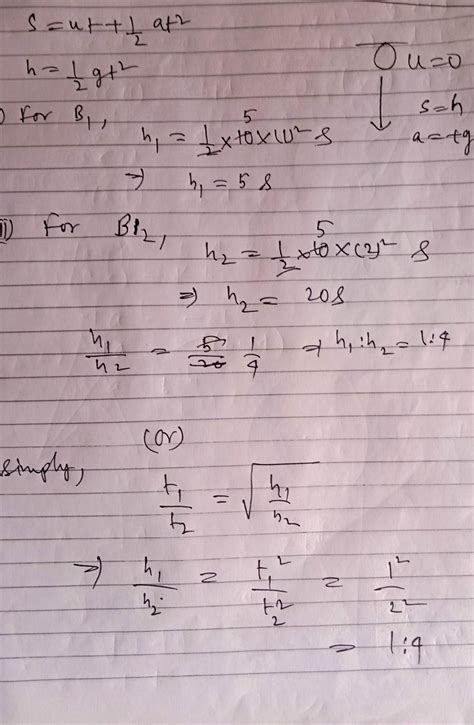 S = ut + 1/2 at²
h = 1/2 gt²
u=0
s=h
a=+g
) For B₁,
5
h₁ = 1/2 × 10 × (1)² S
⇒ h₁ = 5 S
II) For B₂,
5
h₂ = 1/2 × 10 × (2)² S
⇒ h₂ = 20S
h₁/h₂ = 5/20 1/4 ⇒ h₁:h₂ = 1:4
(or)
simply,
t₁/t₂ = √h₁/h₂
⇒ h₁/h₂ = t₁²/t₂² = 1²/2²
= 1:4